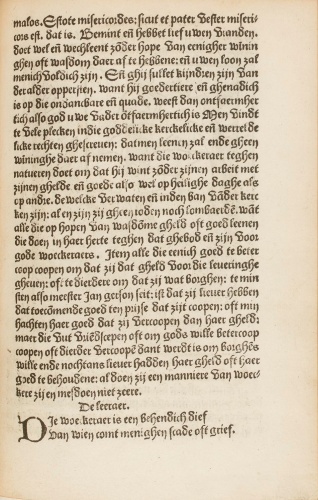 malos. Estote misericordes: sicut et pater vester miseri-
cors est. dat is. Bemint eñ hebbet lief u wen vianden.
doet wel eñ wechleent zõder hope van eenigher winin
ghen oft wasdom daer af te hebbene: eñ u wen loon zal
menichvoldich zijn. Eñ ghij sullet kijndren zijn van
der alder opperften. want hij goedertiere eñ ghenadich
is op die ondancbare eñ quade. weest dan ontfaermher
tich also god u we vader ōtfaermhertich is Men vindt
te vele plecken indie goddelicke kerckelicke eñ werrelde
licke rechten ghescreuen: datmen leenen zal ende gheen
wininghe daer af nemen. want die woeckeraer teghen
natueren doet om dat hij wint zõder zijnen arbeit met
zijnen ghelde. eñ goede also wel op heilighe daghe als
op andre. de welcke verwaten eñ inden ban vãder kerc
ken zijn: al en zijn zij gheen ioden noch lombaerdẽ. wãt
alle die op hopen van wasdõme gheld oft goed leenen
die doen in haer herte teghen dat ghebod eñ zijn voor
gode woeckeraers. Item alle die eenich goed te beter
coop coopen om dat zij dat gheld voor die leueringhe
gheuen: of: te dierdere om dat zij wat borghen: te min
sten also meester Jan gerson seit: ist dat zij liever hebben
dat toecõmende goed ten prijse dat zijt coopen: oft mij
hachten haer goed dat zij vercoopen dan haer gheld:
maer die vut vriẽdscepen oft om gods wille betercoop
coopen oft dierder vercoopẽ dant werdt is om borghẽs
wille ende nochtans liever hadden haer gheld oft haer
goed te behoudene: al doen zij een manniere van woec-
kere zij en mesdoen niet zeere.
De leeraer.
Die woeckeraer is een behendich dief
Van wien comt menighen scade oft grief.